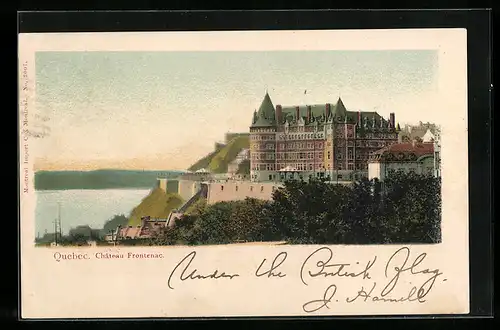 Quebec. Château Frontenac.
Under the British Flag
J. Hamill
Montreal Import Co. Montreal. No.